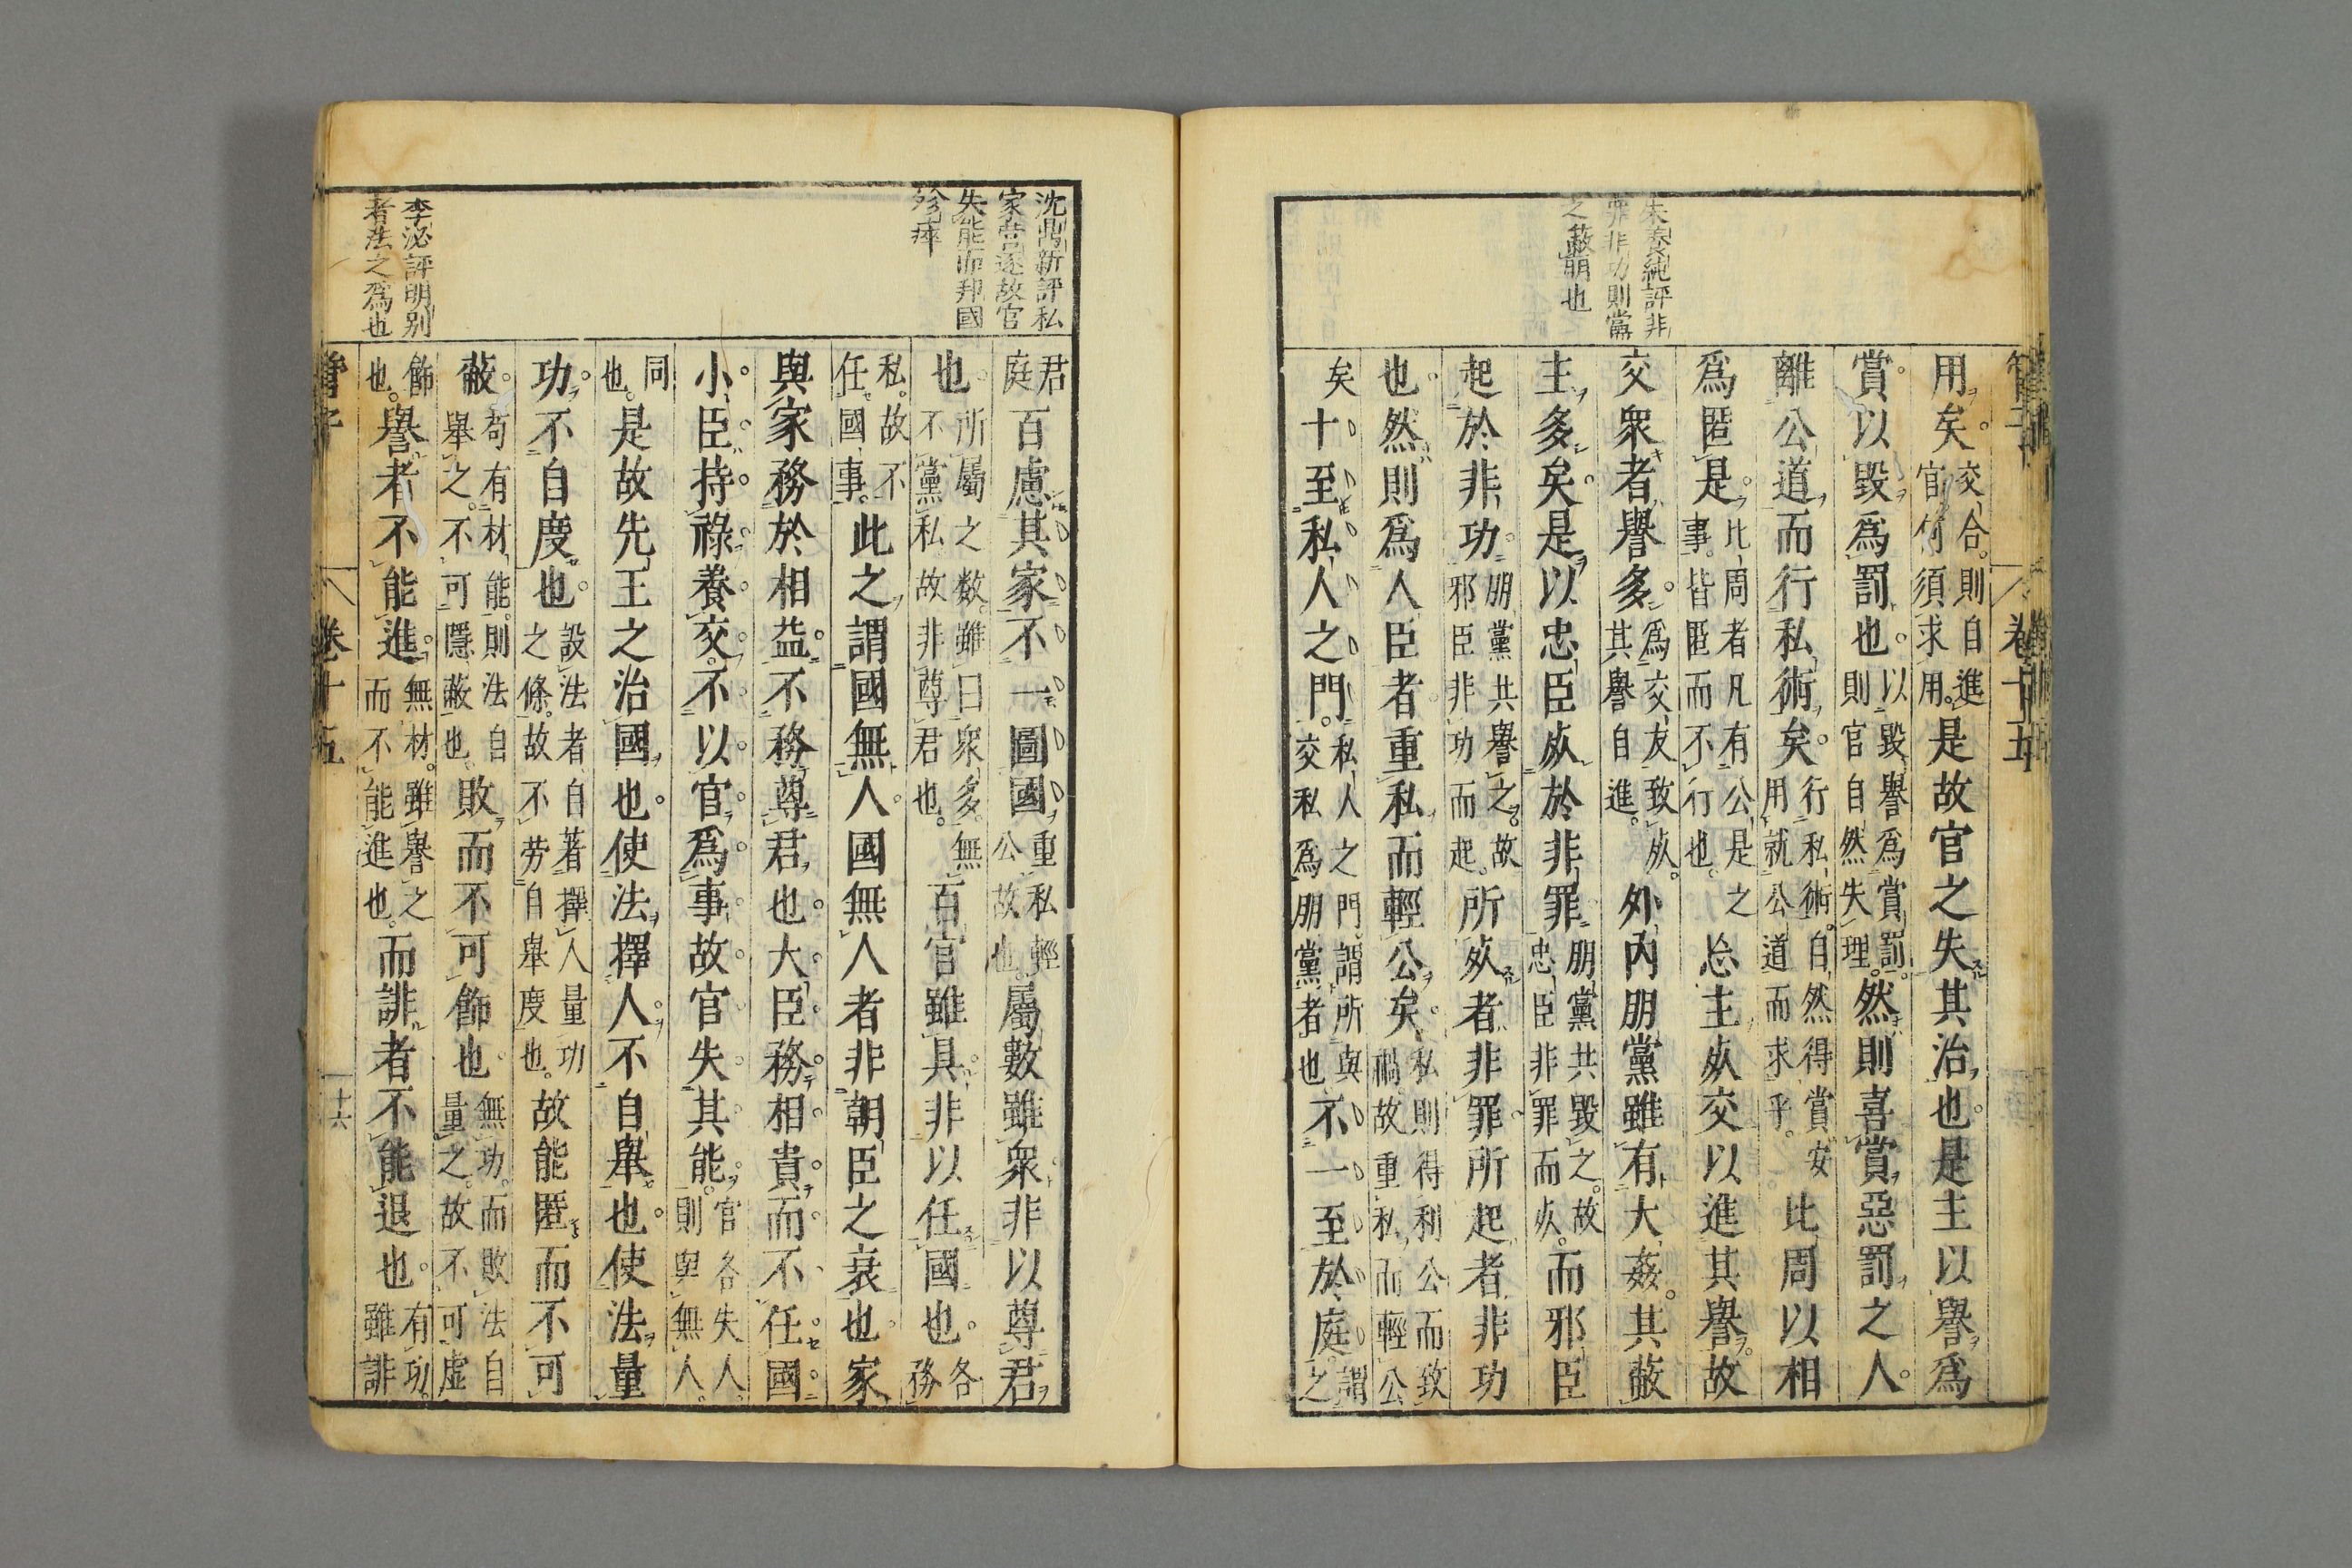 管子
卷十五
朱養純評非
罪非功則黨
之蔽明也
用矣交合則自進官何須求用是故官之失其治也是主以譽爲
賞以毀爲罰也以毀譽爲賞罰則官自然失理然則喜賞惡罰之人
離公道而行私術矣行私術自然得賞安用就公道而求乎比周以相
爲匿是比周者凡有公是之事皆匿而不行也忘主㱾交以進其譽故
交衆者譽多爲交友致㱾其譽自進外內朋黨雖有大姦其蔽
主多矣是以忠臣㱾於非罪朋黨共毀之故忠臣非罪而㱾而邪臣
起於非功朋黨共譽之故邪臣非功而起所㱾者非罪所起者非功
也然則爲人臣者重私而輕公矣私則得利公而致禍故重私而輕公
矣十至私人之門私人之門謂所與交私爲朋黨者也不一至於庭謂之
沈鼎新評私
家營逐故官
失能而邦國
殄瘁
君庭百慮其家不一圖國重私輕公故也屬數雖衆非以尊君
也所屬之數雖曰衆多無不黨私故非尊君也百官雖具非以任國也各務
私故不任國事此之謂國無人國無人者非朝臣之衰也家
與家務於相益不務尊君也大臣務相貴而不任國
小臣持祿養交不以官爲事故官失其能官各失人則與無人
同也是故先王之治國也使法擇人不自舉也使法量
功不自度也設法者自著擇人量功之條故不勞自舉度也故能匿而不可
蔽苟有材能則法自舉之不可隱蔽也敗而不可飾也無功而敗法自量之故不可虛
飾也譽者不能進無材雖譽之而不能進也而誹者不能退也有功雖誹
李泌評明別
者法之爲也
管子
卷十五
十六